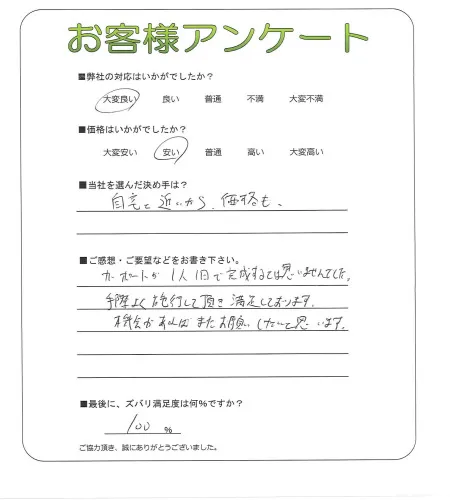 お客様アンケート
■弊社の対応はいかがでしたか？
大変良い 良い 普通 不満 大変不満
■価格はいかがでしたか？
大変安い 安い 普通 高い 大変高い
■当社を選んだ決め手は？
自宅と近いから、価格も、
■ご感想・ご要望などをお書き下さい。
カーポートが1人1日で完成するとは思いませんでした。
手際よく施行して頂き満足しております。
機会があればまたお願いしたいと思います。
■最後に、ズバリ満足度は何％ですか？
100 %
ご協力頂き、誠にありがとうございました。